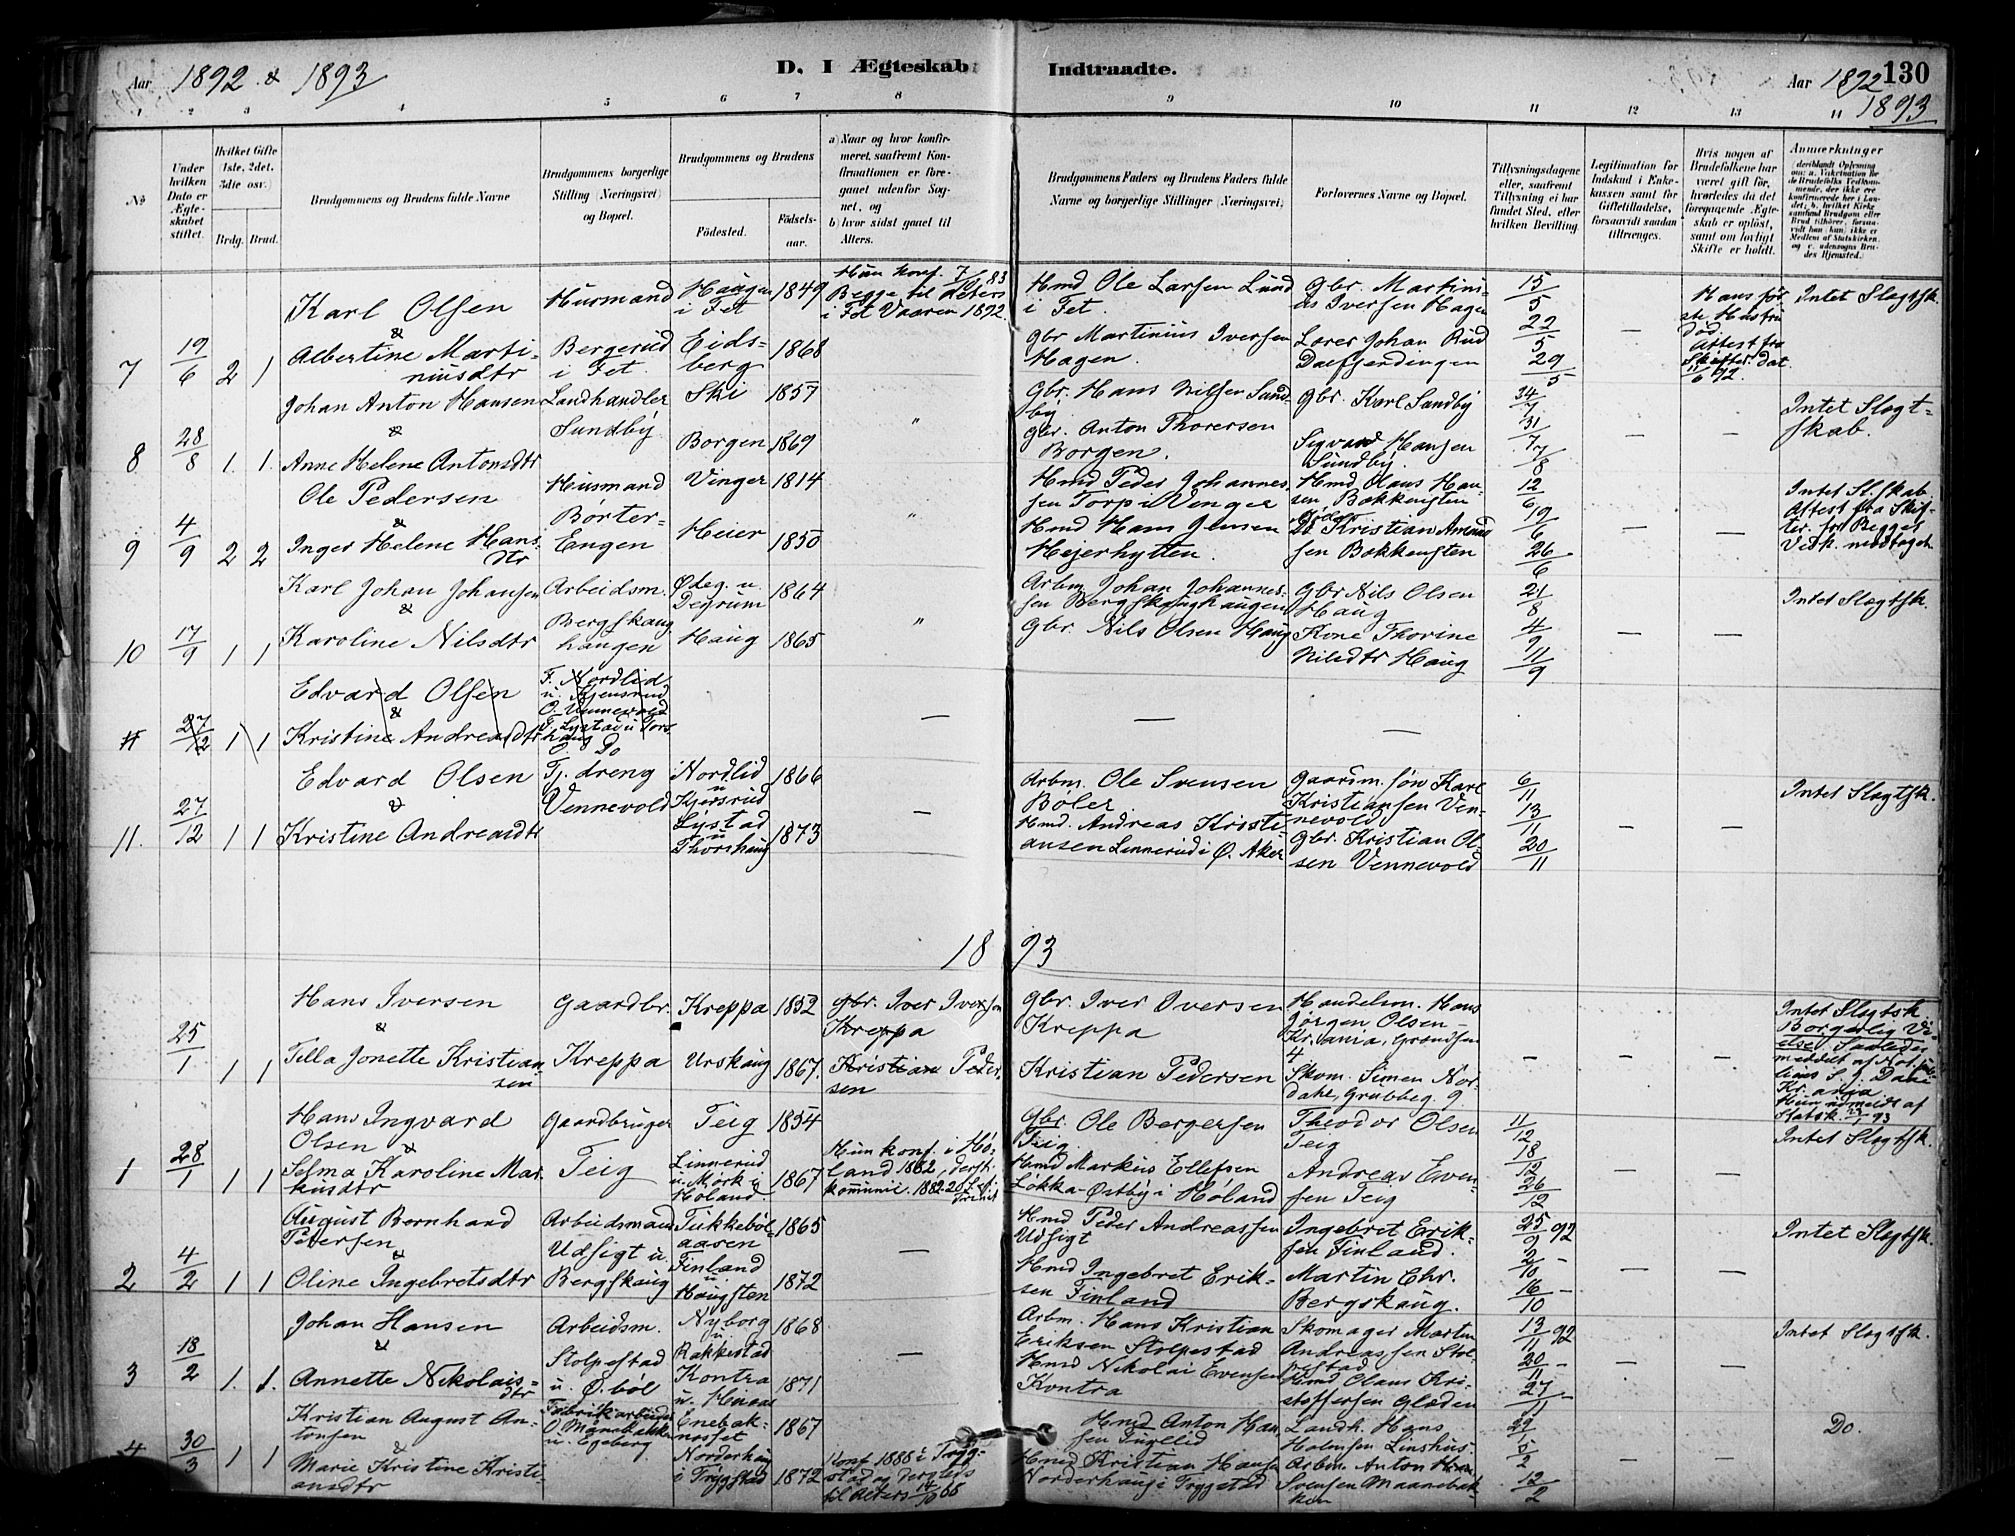 Aar 1892 & 1893 D. I Ægteskab Indtraadte. Aar 1892 130
1893
1 2 3 4 5 6 7 8 9 10 11 12 13 14
№
Under hvilken Dato er Ægteskabet stiftet.
Hvilket Gifte (1ste, 2det, 3die osv.)
Brdg. Brud.
Brudgommens og Brudens fulde Navne
Brudgommens borgerlige Stilling (Næringsvei) og Bopæl.
Brudgommens og Brudens
Fødested.
Fødselsaar.
a) Naar og hvor konfirmeret, saafremt Konfirmationen er foregaaet udenfor Sognet, og
b) hvor sidst gaaet til Alters.
Brudgommens Faders og Brudens Faders fulde Navne og borgerlige Stillinger (Næringsvei)
Forlovernes Navne og Bopæl.
Tillysningsdagene eller, saafremt Tillysning ei har fundet Sted, efter hvilken Bevilling.
Legitimation for Indskud i Enkekassen samt for Giftetilladelse, forsaavidt saadan tiltrænges.
Hvis nogen af Brudefolkene har været gift før, hvorledes da det foregaaende Ægteskab er opløst, samt om lovligt Skifte er holdt.
Anmærkninger
7 19/6 2 1
Karl Olsen
&
Albertine Martiniusdtr
Husmand
Bergerud i Fet.
Haugen i Fet 1849
Eidsberg 1868
Hun konf. 7/10 83
Begge til Alters i Fet Vaaren 1892.
Hmd Ole Larsen Lund i Fet.
Gbr Martinius Iversen Hagen.
Gbr. Martinius Iversen Hagen
Lærer Johan Rud Dalefjerdingen
15/5
22/5
29/5
Hans første Hustru død.
Attest fra Skifter. dat
Intet Slægtsk.
8 28/8 1. 1.
Johan Anton Hansen
&
Anne Helene Antonsdtr
Landhandler
Sundby.
Ski 1857
Borgen 1869
Gbr. Hans Nilsen Sundby
Gbr. Anton Thorersen Borgen.
Gbr. Karl Sundby
Sigvard Hansen Sundby.
24/7
31/7
7/8
Intet Slægtskab.
9 4/9 2 2
Ole Pedersen
&
Inger Helene Hansdtr
Husmand
Børter-Engen
Vinger 1814
Heier 1850
Hmd Peder Johannessen Torp i Venger
Hmd Hans Jensen Hejerhytten.
Hmd. Olaus Hansen Bakkengten
Kristian Amundsen Bakkengten
12/6
19/6
26/6
Intet Sl.skab
Attest fra Skifter. for Begges Vedk. modtaget
10 17/9 1 1
Karl Johan Johansen
&
Karoline Nilsdtr
Arbeidsm.
Bergskaughaugen
Ødeg. u. Degrum 1864
Haug 1865
Arbm Johan Johannessen Bergskaughaugen
Gbr. Nils Olsen Haug
Gbr Nils Olsen Haug
Kone Thorine Nilsdtr Haug
21/8
4/9
11/9
Intet Slægtsk.
11 27/12 1 1
Edvard Olsen
&
Kristine Andreasdtr
F. Nordlid
O. Vennevold
F. Lystad u Torshaug
O. Do
11. 27/12 1 1
Edvard Olsen
&
Kristine Andreasdtr
Tj. dreng
Vennevold
Nordlid u Kjensrud 1866
Lystad u Thorshaug 1873
Arbm. Ole Svensen Bøler
Hmd. Andreas Kristiansen Linnerud i Ø. Aker
Gaardm. søn Karl Kristiansen Vennevold
Gbr. Kristian Olsen Vennevold
6/11
13/11
20/11
Intet Slægtsk.
1893
25/1 1 1
Hans Iversen
&
Tilla Jonette Kristiansen
Gaardbr.
Kreppa
Kreppa 1852
Urskaug 1867.
Gbr. Iver Iversen Kreppa
Kristian Pedersen
Gbr. Iver Iversen Kreppa
Kristian Pedersen
Handelsm. Hans Jørgen Olsen - Kr.ania, Grændsen 4
Skom. Simen Nordahl, Grubbeg. 9
Intet Slægtsk.
Borgerlig Vielse
Kr.ania
Hun udmeldt af Statsk.
1 28/1 1 1
Hans Ingvard Olsen &
Selma Karoline Markusdtr
Gaardbruger
Teig
Teig 1854
Linnerud u. Mork i Høland 1867
Hun konf. i Høland 1882, derst. kommunic. 1882
Gbr. Ole Bergersen Teig.
Hmd Markus Ellefsen Løkka-Østby i Høland
Theodor Olsen Teig
Andreas Evensen Teig
11/12
18/12
26/12
Intet Slægtsk.
2 4/2 1 1
August Bernhard Petersen
&
Oline Ingebretsdtr
Arbeidsmand
Udsigt u Bergskaug
Tukkebølaasen 1865
Finland u Haugsten 1872
Hmd Peder Andreassen Udsigt
Hmd Ingebret Eriksen Finland
Ingebret Eriksen Finland.
Martin Chr. Bergskaug.
25/9 92
2/10 -
16/10 -
Intet Slægtsk.
3 18/2 1. 1.
Johan Hansen
&
Annette Nikolaisdtr
Arbeidsm.
Stolpestad u. Ø. bøl
Nyborg u Rakkestad 1868
Kontra 1871
Arbm. Hans Kristian Eriksen Stolpestad
Hmd Nikolai Evensen Kontra
Skomager Martin Andreassen Stolpestad
Hmd Olaus Kristoffersen Glæden
13/11 92
20/11 -
27/11 -
Intet Slægtsk.
4 30/3 1 1
Kristian August Antonsen
&
Marie Kristine Kristiansdtr
Fabrikarbeider
Enebaknesset 1867
Norderhaug i Trygstad 1872
Konf 1886 i Trygstad og dersteds til Alters
Hmd Anton Hansen Fuglelid
Hmd Kristian Hansen Norderhaug i Trygstad
Landh. Hans Holmsen Linshus.
Arbm. Anton Svensen Maanebakken
29/1
5/2
12/2
Do.